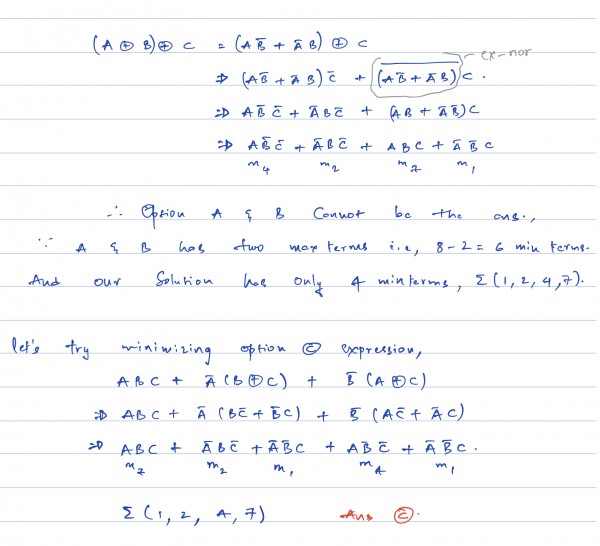 (A ⊕ B) ⊕ C = (A B̅ + A̅ B) ⊕ C
ex-nor
⇒ (A B̅ + A̅ B) C̅ + \overline{(A B̅ + A̅ B)} C .
⇒ A B̅ C̅ + A̅ B C̅ + (A B + A̅ B̅) C
⇒ A B̅ C̅ + A̅ B C̅ + A B C + A̅ B̅ C
m₄ m₂ m₇ m₁
∴ Option A & B Cannot be the ans.,
∵ A & B has two max terms i.e, 8 - 2 = 6 min terms.
And our Solution has only 4 minterms, Σ (1, 2, 4, 7).
let's try minimizing option Ⓒ expression,
A B C + A̅ (B ⊕ C) + B̅ (A ⊕ C)
⇒ A B C + A̅ (B C̅ + B̅ C) + B̅ (A C̅ + A̅ C)
⇒ A B C + A̅ B C̅ + A̅ B̅ C + A B̅ C̅ + A̅ B̅ C .
m₇ m₂ m₁ m₄ m₁
Σ (1, 2, 4, 7) Ans Ⓒ.